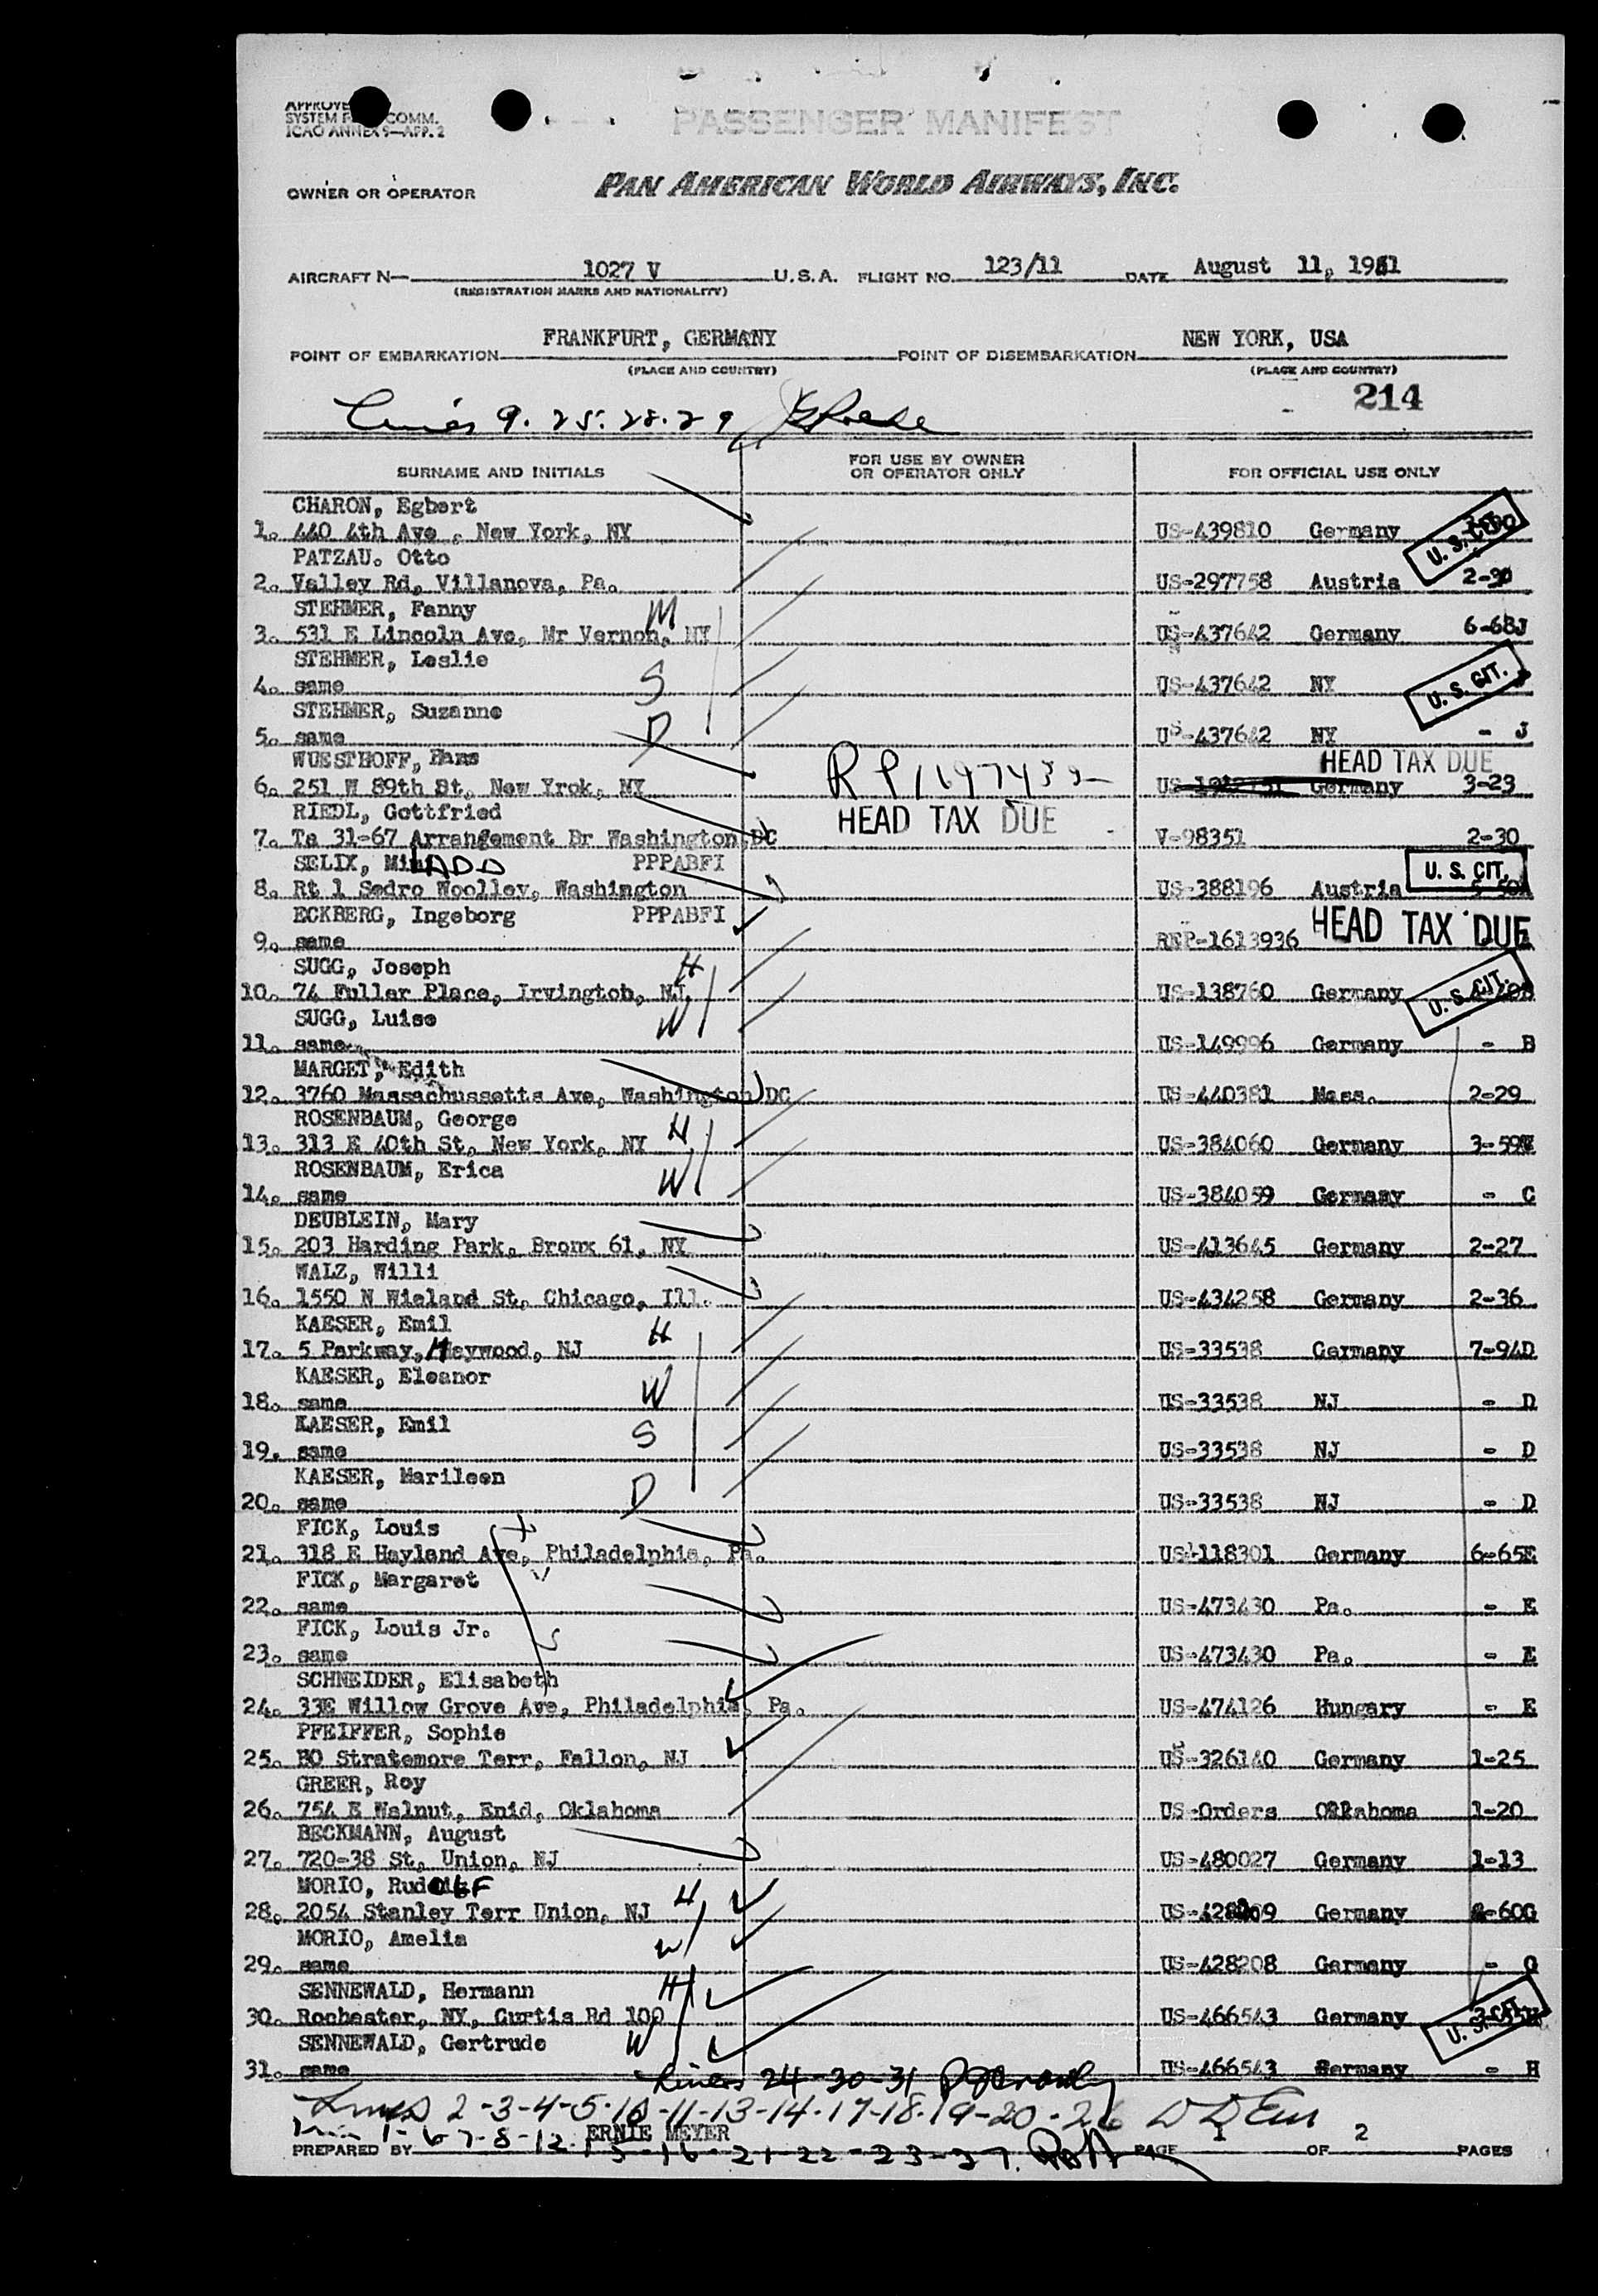 APPROVE
SYSTEM F COMM.
ICAO ANNEX 9—APP. 2
PASSENGER MANIFEST
OWNER OR OPERATOR PAN AMERICAN WORLD AIRWAYS, INC.
AIRCRAFT N— 1027 V U.S.A. FLIGHT NO. 123/11 DATE August 11, 1951
(REGISTRATION MARKS AND NATIONALITY)
POINT OF EMBARKATION FRANKFURT, GERMANY POINT OF DISEMBARKATION NEW YORK, USA
(PLACE AND COUNTRY) (PLACE AND COUNTRY)
214
9. 25. 28. 29
SURNAME AND INITIALS FOR USE BY OWNER OR OPERATOR ONLY FOR OFFICIAL USE ONLY
CHARON, Egbert
1. 440 4th Ave , New York, NY US-439810 Germany U. S. CIT.
PATZAU. Otto
2. Valley Rd, Villanova, Pa. US-297758 Austria 2-30
STEHMER, Fanny M
3. 531 E Lincoln Ave, Mr Vernon, NY US-437642 Germany 6-68J
STEHMER, Leslie S
4. same US-437642 NY U. S. CIT.
STEHMER, Suzanne D
5. same US-437642 NY - J
WUESTHOFF, Hans HEAD TAX DUE
6. 251 W 89th St, New Yrok, NY RP1697439 Germany 3-23
RIEDL, Gottfried HEAD TAX DUE
7. Ta 31-67 Arrangement Br Washington,DC V-98351 2-30
SELIX, LADD PPPABFI U. S. CIT.
8. Rt 1 Sedro Woolley, Washington US-388196 Austria
ECKBERG, Ingeborg PPPABFI HEAD TAX DUE
9. same REP-1613936
SUGG, Joseph H
10. 74 Fuller Place, Irvingtob, NJ, US-138760 Germany U. S. CIT.
SUGG, Luise W
11. same US-149996 Germany - B
MARGET, Edith
12. 3760 Massachussetts Ave, Washington DC US-440381 Mass. 2-29
ROSENBAUM, George H
13. 313 E 40th St, New York, NY US-384060 Germany 3-59
ROSENBAUM, Erica W
14. same US-384059 Germany - C
DEUBLEIN, Mary
15. 203 Harding Park, Bronx 61, NY US-413645 Germany 2-27
WALZ, Willi
16. 1550 N Wieland St, Chicago, Ill. US-434258 Germany 2-36
KAESER, Emil H
17. 5 Parkway, Heywood, NJ US-33538 Germany 7-94D
KAESER, Eleanor W
18. same US-33538 NJ - D
KAESER, Emil S
19. same US-33538 NJ - D
KAESER, Marileen D
20. same US-33538 NJ - D
FICK, Louis
21. 318 E Hayland Ave, Philadelphia, Pa. US-118301 Germany 6-65E
FICK, Margaret
22. same US-473430 Pa. - E
FICK, Louis Jr. S
23. same US-473430 Pa. - E
SCHNEIDER, Elisabeth
24. 33E Willow Grove Ave, Philadelphia, Pa. US-474126 Hungary - E
PFEIFFER, Sophie
25. BO Stratemore Terr, Fallon, NJ US-326140 Germany 1-25
GREER, Roy
26. 754 E Walnut, Enid, Oklahoma US-Orders Oklahoma 1-20
BECKMANN, August
27. 720-38 St, Union, NJ US-480027 Germany 1-13
MORIO, Rudolf H
28. 2054 Stanley Terr Union, NJ US-428209 Germany -60G
MORIO, Amelia W
29. same US-428208 Germany - G
SENNEWALD, Hermann H
30. Rochester, NY, Curtis Rd 100 US-466543 Germany U. S. CIT.
SENNEWALD, Gertrude W
31. same US-466543 Germany - H
Lines 24-30-31
Lines 2-3-4-5-10-11-13-14-17-18-19-20-26
1-6 7-8-12 15-16-21-22-23-27.
PREPARED BY ERNIE MEYER PAGE 1 OF 2 PAGES